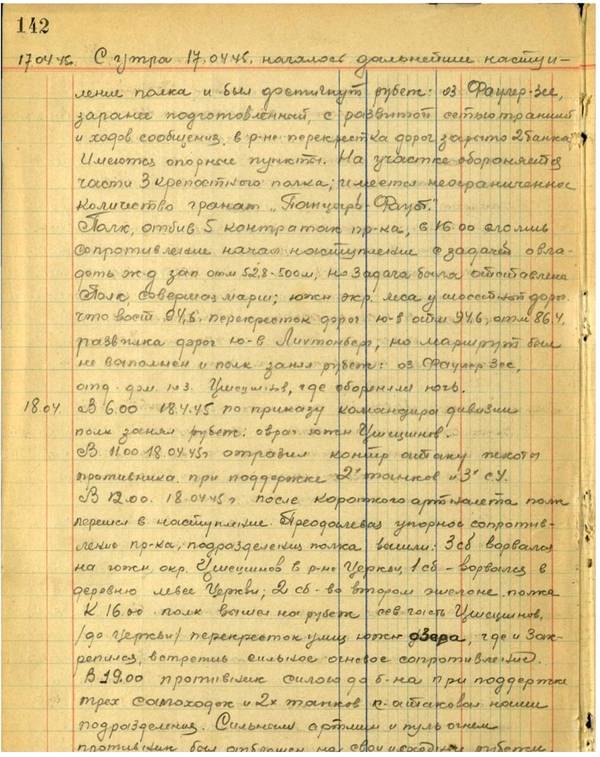 142
17.04.45. С утра 17.04.45. началось дальнейшее насту-
пление полка и был достигнут рубеж: оз Фаулер-Зее,
заранее подготовленный, с развитой сетью траншей
и ходов сообщения, в р-не перекрестка дорог зарыто 2 танка,
Имеются опорные пункты. На участке обороняется
части 3 крепостного полка; имеется неограниченное
количество гранат „Панцырь Фауст."
Полк, отбив 5 контратак пр-ка, в 16.00 сломив
сопротивление начал наступление с задачей овла-
деть ж.д зап отм 52,8-500м, но задача была
Полк, совершая марш; южн окр. леса у шоссейной дороги
что вост 94,6. перекресток дорог ю-в отм 94.6, отм 86.4,
развилка дорог ю-в Лихтенберг, но маршрут был
не выполнен и полк занял рубеж: оз Фаулер Зее,
отд. дом. на з. где оборонялся ночь.
18.04. В 6.00 18.4.45 по приказу командира дивизии
полк занял рубеж: овраг южн
В 11.00 18.04.45г отразил контр атаку пехоты
противника при поддержке 2х танков и 3х СУ.
В 12.00. 18.04.45г. после короткого артналета полк
перешел в наступление. Преодолевая упорное сопротив-
ление пр-ка, подразделения полка вышли: 3 сб ворвался
на южн. окр. в р-не Церкви, 1 сб - ворвался в
деревню левее Церкви; 2 сб - во втором эшелоне полка
К 16.00 полк вышел на рубеж сев часть
/до Церкви/ перекресток улиц южн озера, где и зак-
репился, встретив сильное огневое сопротивление.
В 19.00 противник силою до б-на при поддержке
трех самоходок и 2х танков к-атаковал наши
подразделения. Сильным артмин и пуль огнем
противник был отброшен на свои исходные рубежи.